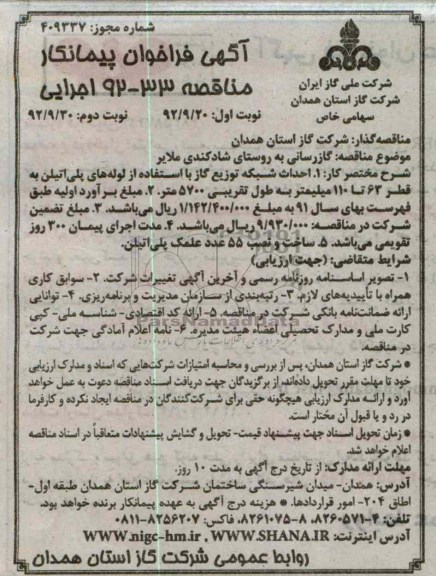 شماره مجوز: ۴۰۹۳۳۷
شرکت ملی گاز ایران
شرکت گاز استان همدان
سهامی خاص
آگهی فراخوان پیمانکار
مناقصه ۳۳-۹۲ اجرایی
نوبت اول: ۹۲/۹/۲۰ نوبت دوم: ۹۲/۹/۳۰
مناقصه‌گذار: شرکت گاز استان همدان
موضوع مناقصه: گازرسانی به روستای شادکندی ملایر
شرح مختصر کار: ۱. احداث شبکه توزیع گاز با استفاده از لوله‌های پلی‌اتیلن به
قطر ۶۳ تا ۱۱۰ میلیمتر به طول تقریبی ۵۷۰۰ متر. ۲. مبلغ برآورد اولیه طبق
فهرست بهای سال ۹۱ به مبلغ ۱/۱۴۲/۴۰۰/۰۰۰ ریال می‌باشد. ۳. مبلغ تضمین
شرکت در مناقصه: ۹/۹۳۰/۰۰۰ ریال می‌باشد. ۴. مدت اجرای پیمان ۳۰۰ روز
تقویمی می‌باشد. ۵. ساخت و نصب ۵۵ عدد علمک پلی‌اتیلن.
شرایط متقاضی: (جهت ارزیابی)
۱- تصویر اساسنامه روزنامه رسمی و آخرین آگهی تغییرات شرکت. ۲- سوابق کاری
همراه با تأییدیه‌های لازم. ۳- رتبه‌بندی از سازمان مدیریت و برنامه‌ریزی. ۴- توانایی
ارائه ضمانت‌نامه بانکی شرکت در مناقصه. ۵- ارائه کد اقتصادی- شناسه ملی- کپی
کارت ملی و مدارک تحصیلی اعضاء هیئت مدیره. ۶- نامه اعلام آمادگی جهت شرکت
در مناقصه.
* شرکت گاز استان همدان، پس از بررسی و محاسبه امتیازات شرکت‌هایی که اسناد و مدارک ارزیابی
خود تا مهلت مقرر تحویل داده‌اند، از برگزیدگان جهت دریافت اسناد مناقصه دعوت به عمل خواهد
آورد و ارائه مدارک ارزیابی هیچگونه حقی برای شرکت‌کنندگان در مناقصه ایجاد نکرده و کارفرما
در رد و یا قبول آن مختار است.
* زمان تحویل اسناد جهت پیشنهاد قیمت- تحویل و گشایش پیشنهادات متعاقباً در اسناد مناقصه
اعلام خواهد شد.
مهلت ارائه مدارک: از تاریخ درج آگهی به مدت ۱۰ روز.
آدرس: همدان- میدان شیرسنگی ساختمان شرکت گاز استان همدان طبقه اول-
اطاق ۲۰۴- امور قراردادها. * هزینه درج آگهی به عهده پیمانکار برنده خواهد بود.
تلفن: ۴-۸۲۶۰۵۷۱، ۸-۸۲۶۱۰۷۵، فاکس: ۸۲۵۶۲۰۷-۰۸۱۱
آدرس اینترنت: WWW.nigc-hm.ir , WWW.SHANA.IR
روابط عمومی شرکت گاز استان همدان